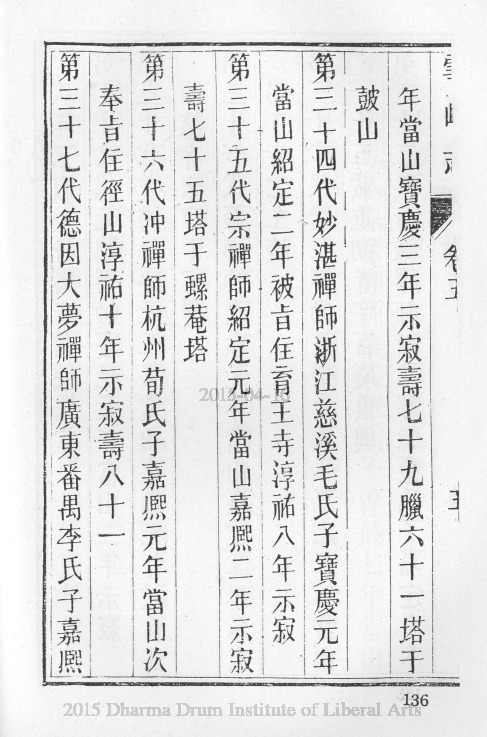 雪峰志 卷五 五
年當山寶慶三年示寂壽七十九臘六十一塔于
鼓山
第三十四代妙湛禪師浙江慈溪毛氏子寶慶元年
當山紹定二年被㫖住育王寺淳祐八年示寂
第三十五代宗禪師紹定元年當山嘉熈二年示寂
壽七十五塔于螺菴塔
第三十六代冲禪師杭州荀氏子嘉熈元年當山次
奉㫖住徑山淳祐十年示寂壽八十一
第三十七代德因大夢禪師廣東番禺李氏子嘉熈
2015-04-10
136
2015 Dharma Drum Institute of Liberal Arts